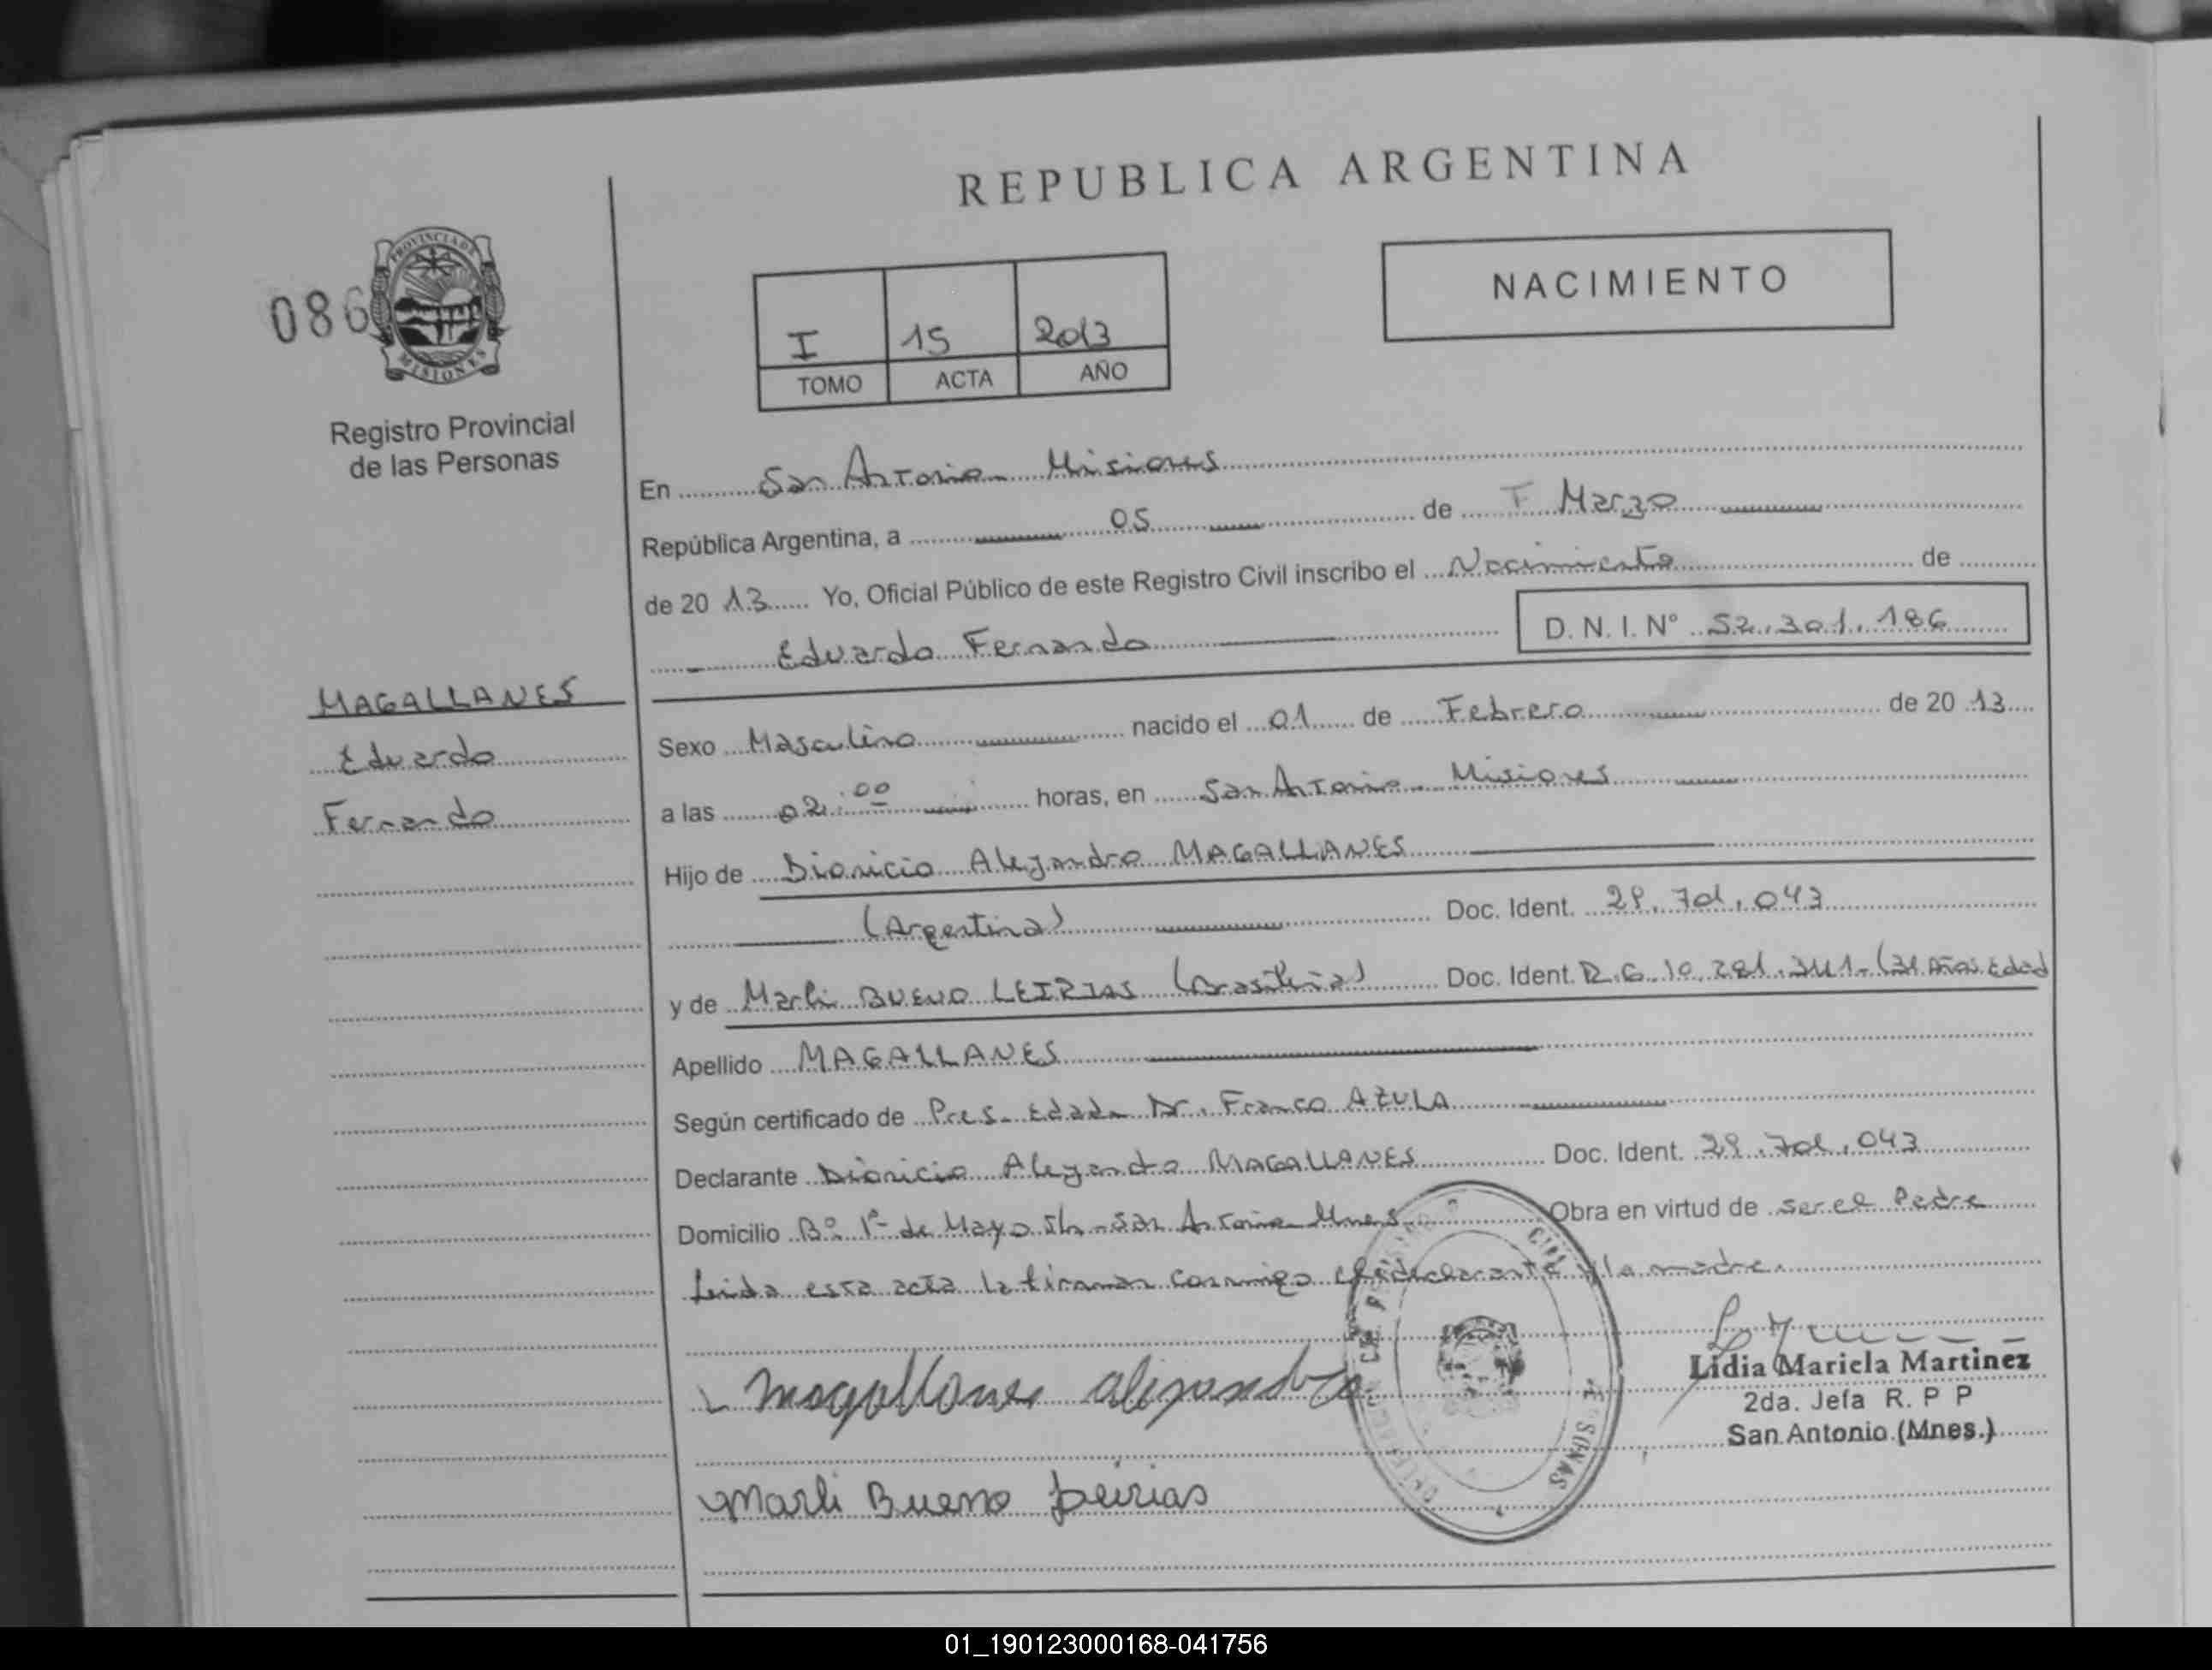 REPUBLICA ARGENTINA
NACIMIENTO
086
PROVINCIA DE
MISIONES
Registro Provincial
de las Personas
I 15 2013
TOMO ACTA AÑO
En San Antonio Misiones
República Argentina, a 05 de Marzo
de 20 13 Yo, Oficial Público de este Registro Civil inscribo el Nacimiento de
Eduardo Fernando D. N. I. Nº 52.301.186
MAGALLANES
Eduardo
Fernando
Sexo Masculino nacido el 01 de Febrero de 20 13
a las 02:00 horas, en San Antonio Misiones
Hijo de Dionicio Alejandro MAGALLANES
(Argentina) Doc. Ident. 29.701.043
y de Marli BUENO LEIRIAS (Brasileña) Doc. Ident. R.G. 10.281.341-(31 Años Edad
Apellido MAGALLANES
Según certificado de Pres. Edad Dr. Franco AZULA
Declarante Dionicio Alejandro MAGALLANES Doc. Ident. 29.701.043
Domicilio Bº 1º de Mayo s/n - San Antonio Mnes Obra en virtud de ser el Padre
Leida esta acta la firman conmigo el declarante y la madre.
Magallanes alejandro
Lidia Mariela Martinez
2da. Jefa R. P P
San Antonio (Mnes.)
Marli Bueno Leirias
01_190123000168-041756